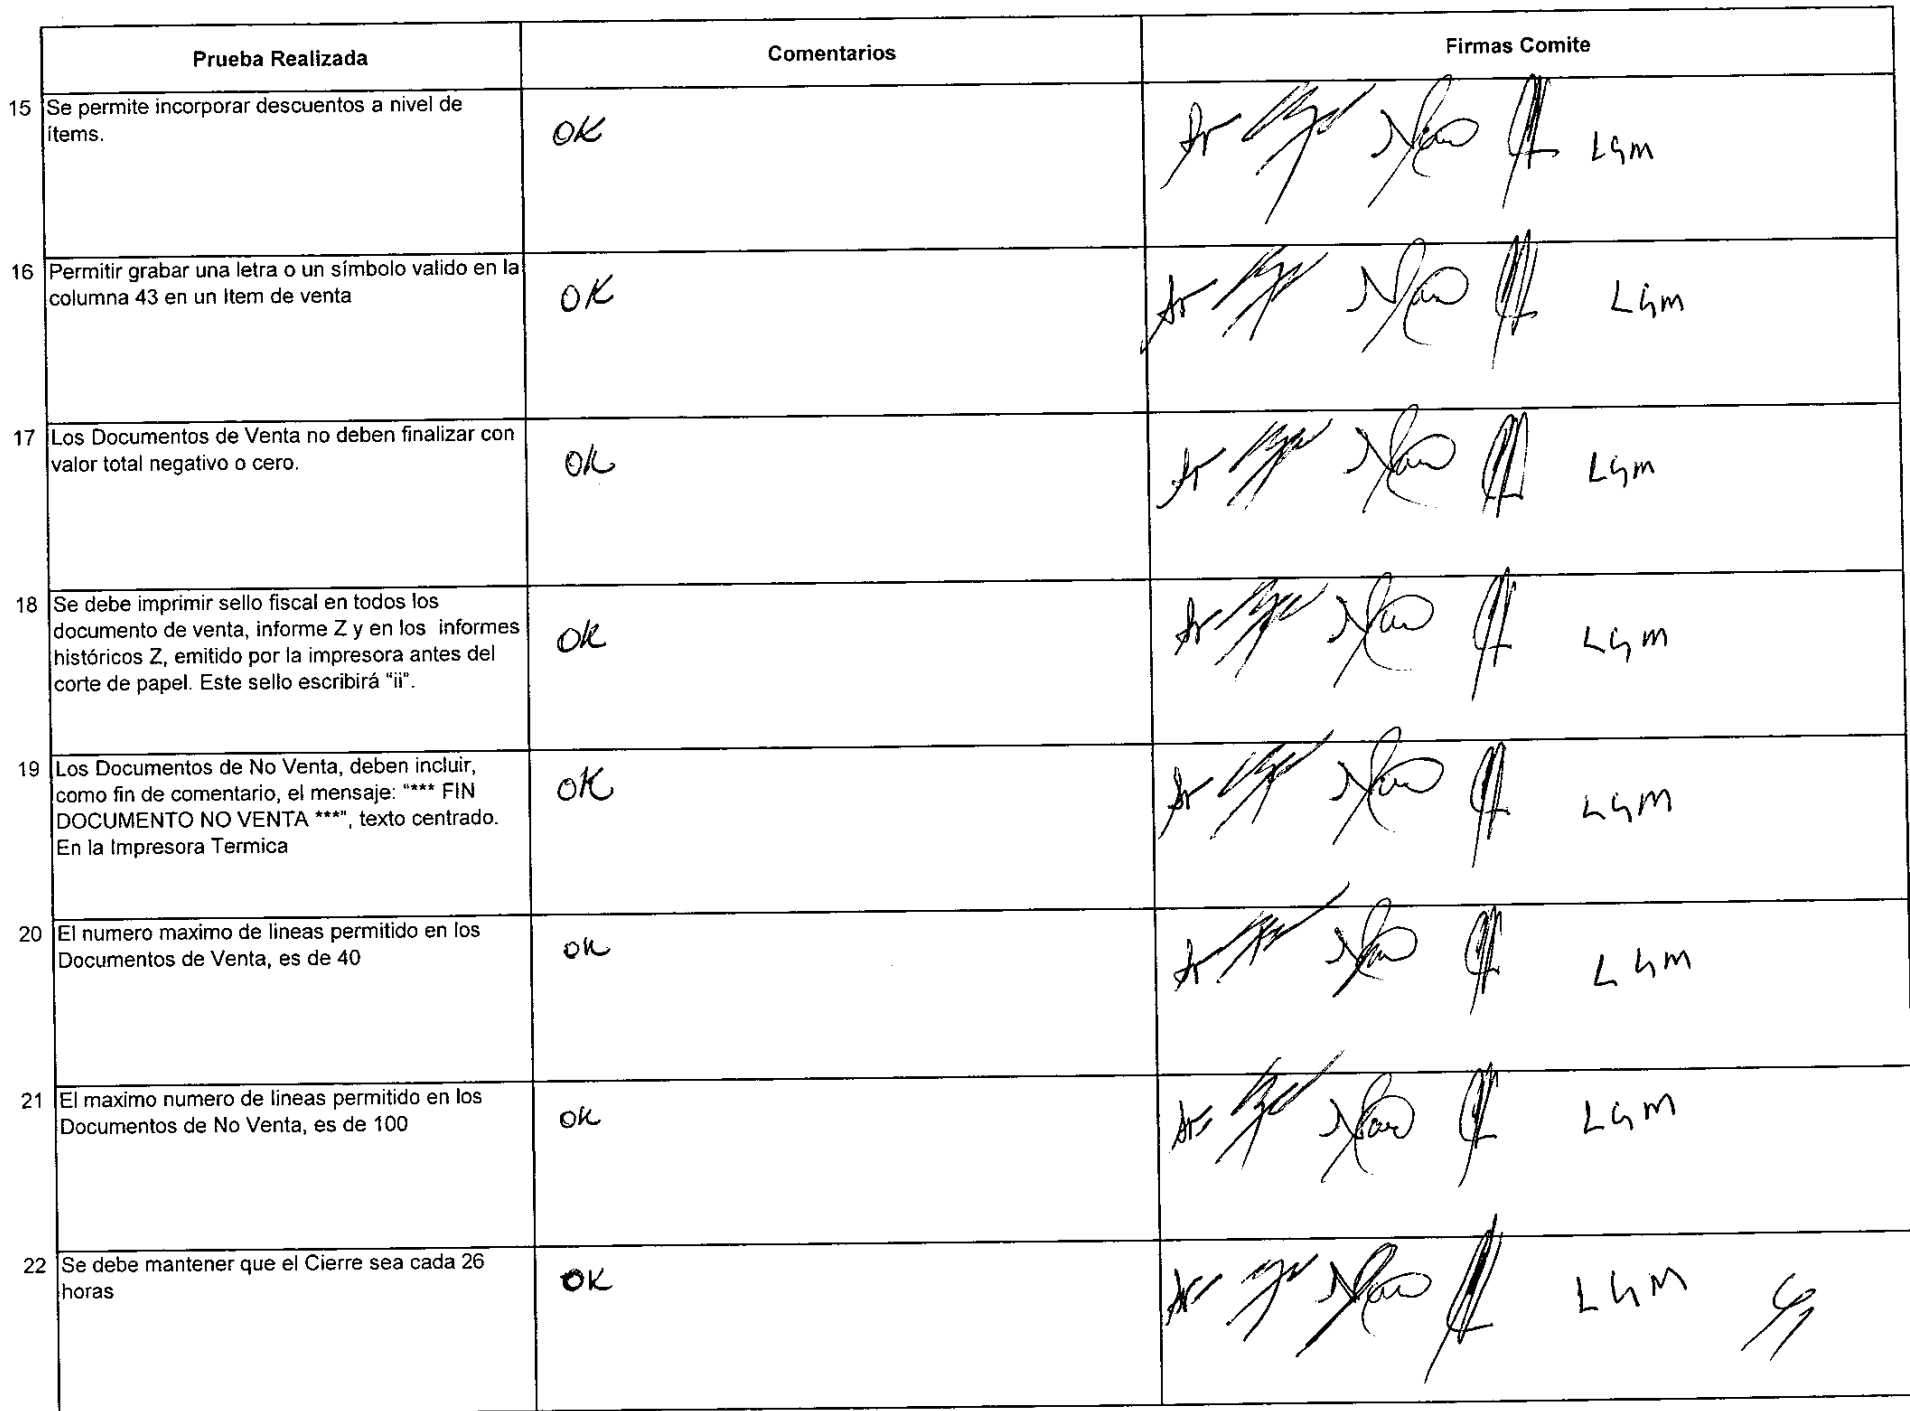 Prueba Realizada Comentarios Firmas Comite
15 Se permite incorporar descuentos a nivel de
ítems.
OK
LGM
16 Permitir grabar una letra o un símbolo valido en la
columna 43 en un Item de venta
OK
LGM
17 Los Documentos de Venta no deben finalizar con
valor total negativo o cero.
OK
LGM
18 Se debe imprimir sello fiscal en todos los
documento de venta, informe Z y en los informes
históricos Z, emitido por la impresora antes del
corte de papel. Este sello escribirá "ii".
OK
LGM
19 Los Documentos de No Venta, deben incluir,
como fin de comentario, el mensaje: "*** FIN
DOCUMENTO NO VENTA ***", texto centrado.
En la Impresora Termica
OK
LGM
20 El numero maximo de lineas permitido en los
Documentos de Venta, es de 40
OK
LGM
21 El maximo numero de lineas permitido en los
Documentos de No Venta, es de 100
OK
LGM
22 Se debe mantener que el Cierre sea cada 26
horas
OK
LGM